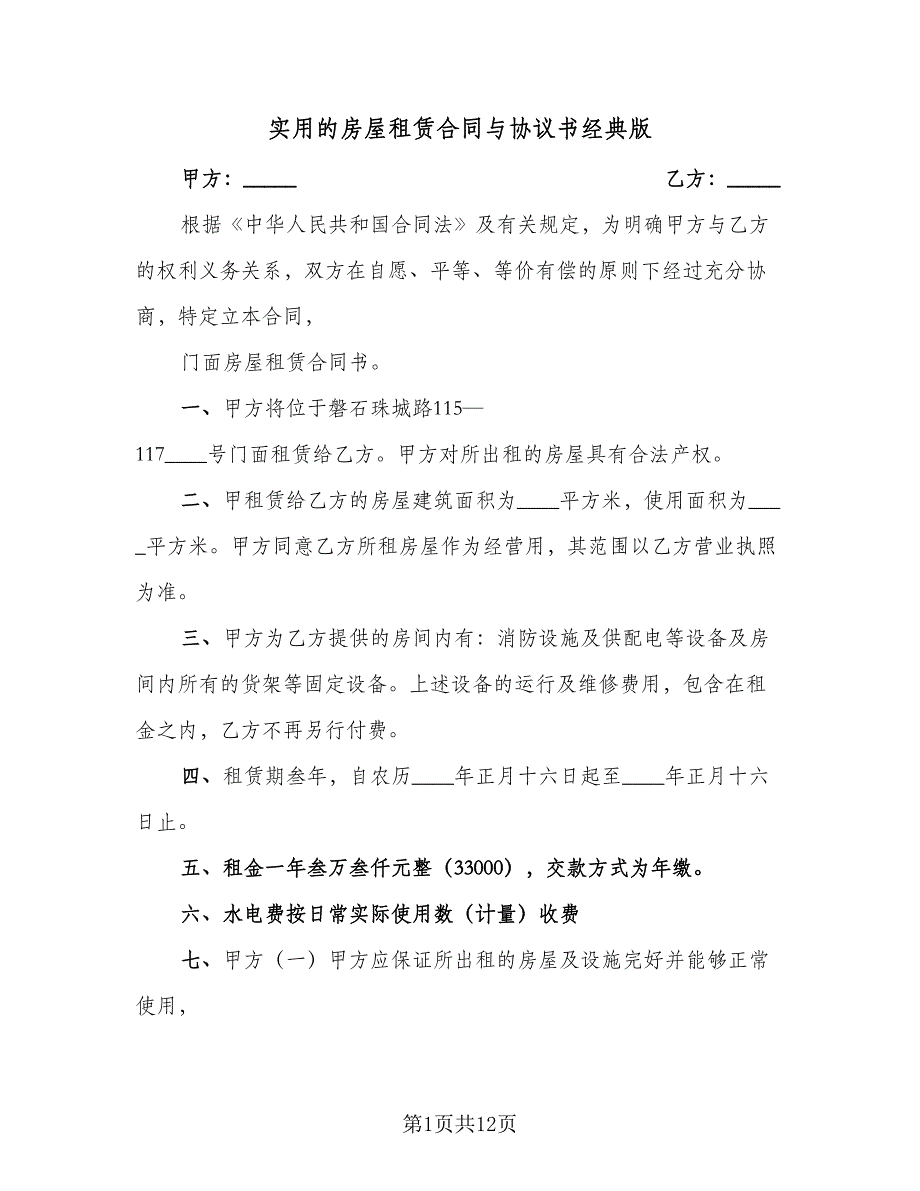 实用的房屋租赁合同与协议书经典版
甲方：_____ 乙方：_____
根据《中华人民共和国合同法》及有关规定，为明确甲方与乙方
的权利义务关系，双方在自愿、平等、等价有偿的原则下经过充分协
商，特定立本合同，
门面房屋租赁合同书。
一、甲方将位于磐石珠城路115—
117____号门面租赁给乙方。甲方对所出租的房屋具有合法产权。
二、甲租赁给乙方的房屋建筑面积为____平方米，使用面积为___
_平方米。甲方同意乙方所租房屋作为经营用，其范围以乙方营业执照
为准。
三、甲方为乙方提供的房间内有：消防设施及供配电等设备及房
间内所有的货架等固定设备。上述设备的运行及维修费用，包含在租
金之内，乙方不再另行付费。
四、租赁期叁年，自农历____年正月十六日起至____年正月十六
日止。
五、租金一年叁万叁仟元整（33000），交款方式为年缴。
六、水电费按日常实际使用数（计量）收费
七、甲方（一）甲方应保证所出租的房屋及设施完好并能够正常
使用，
第1页共12页